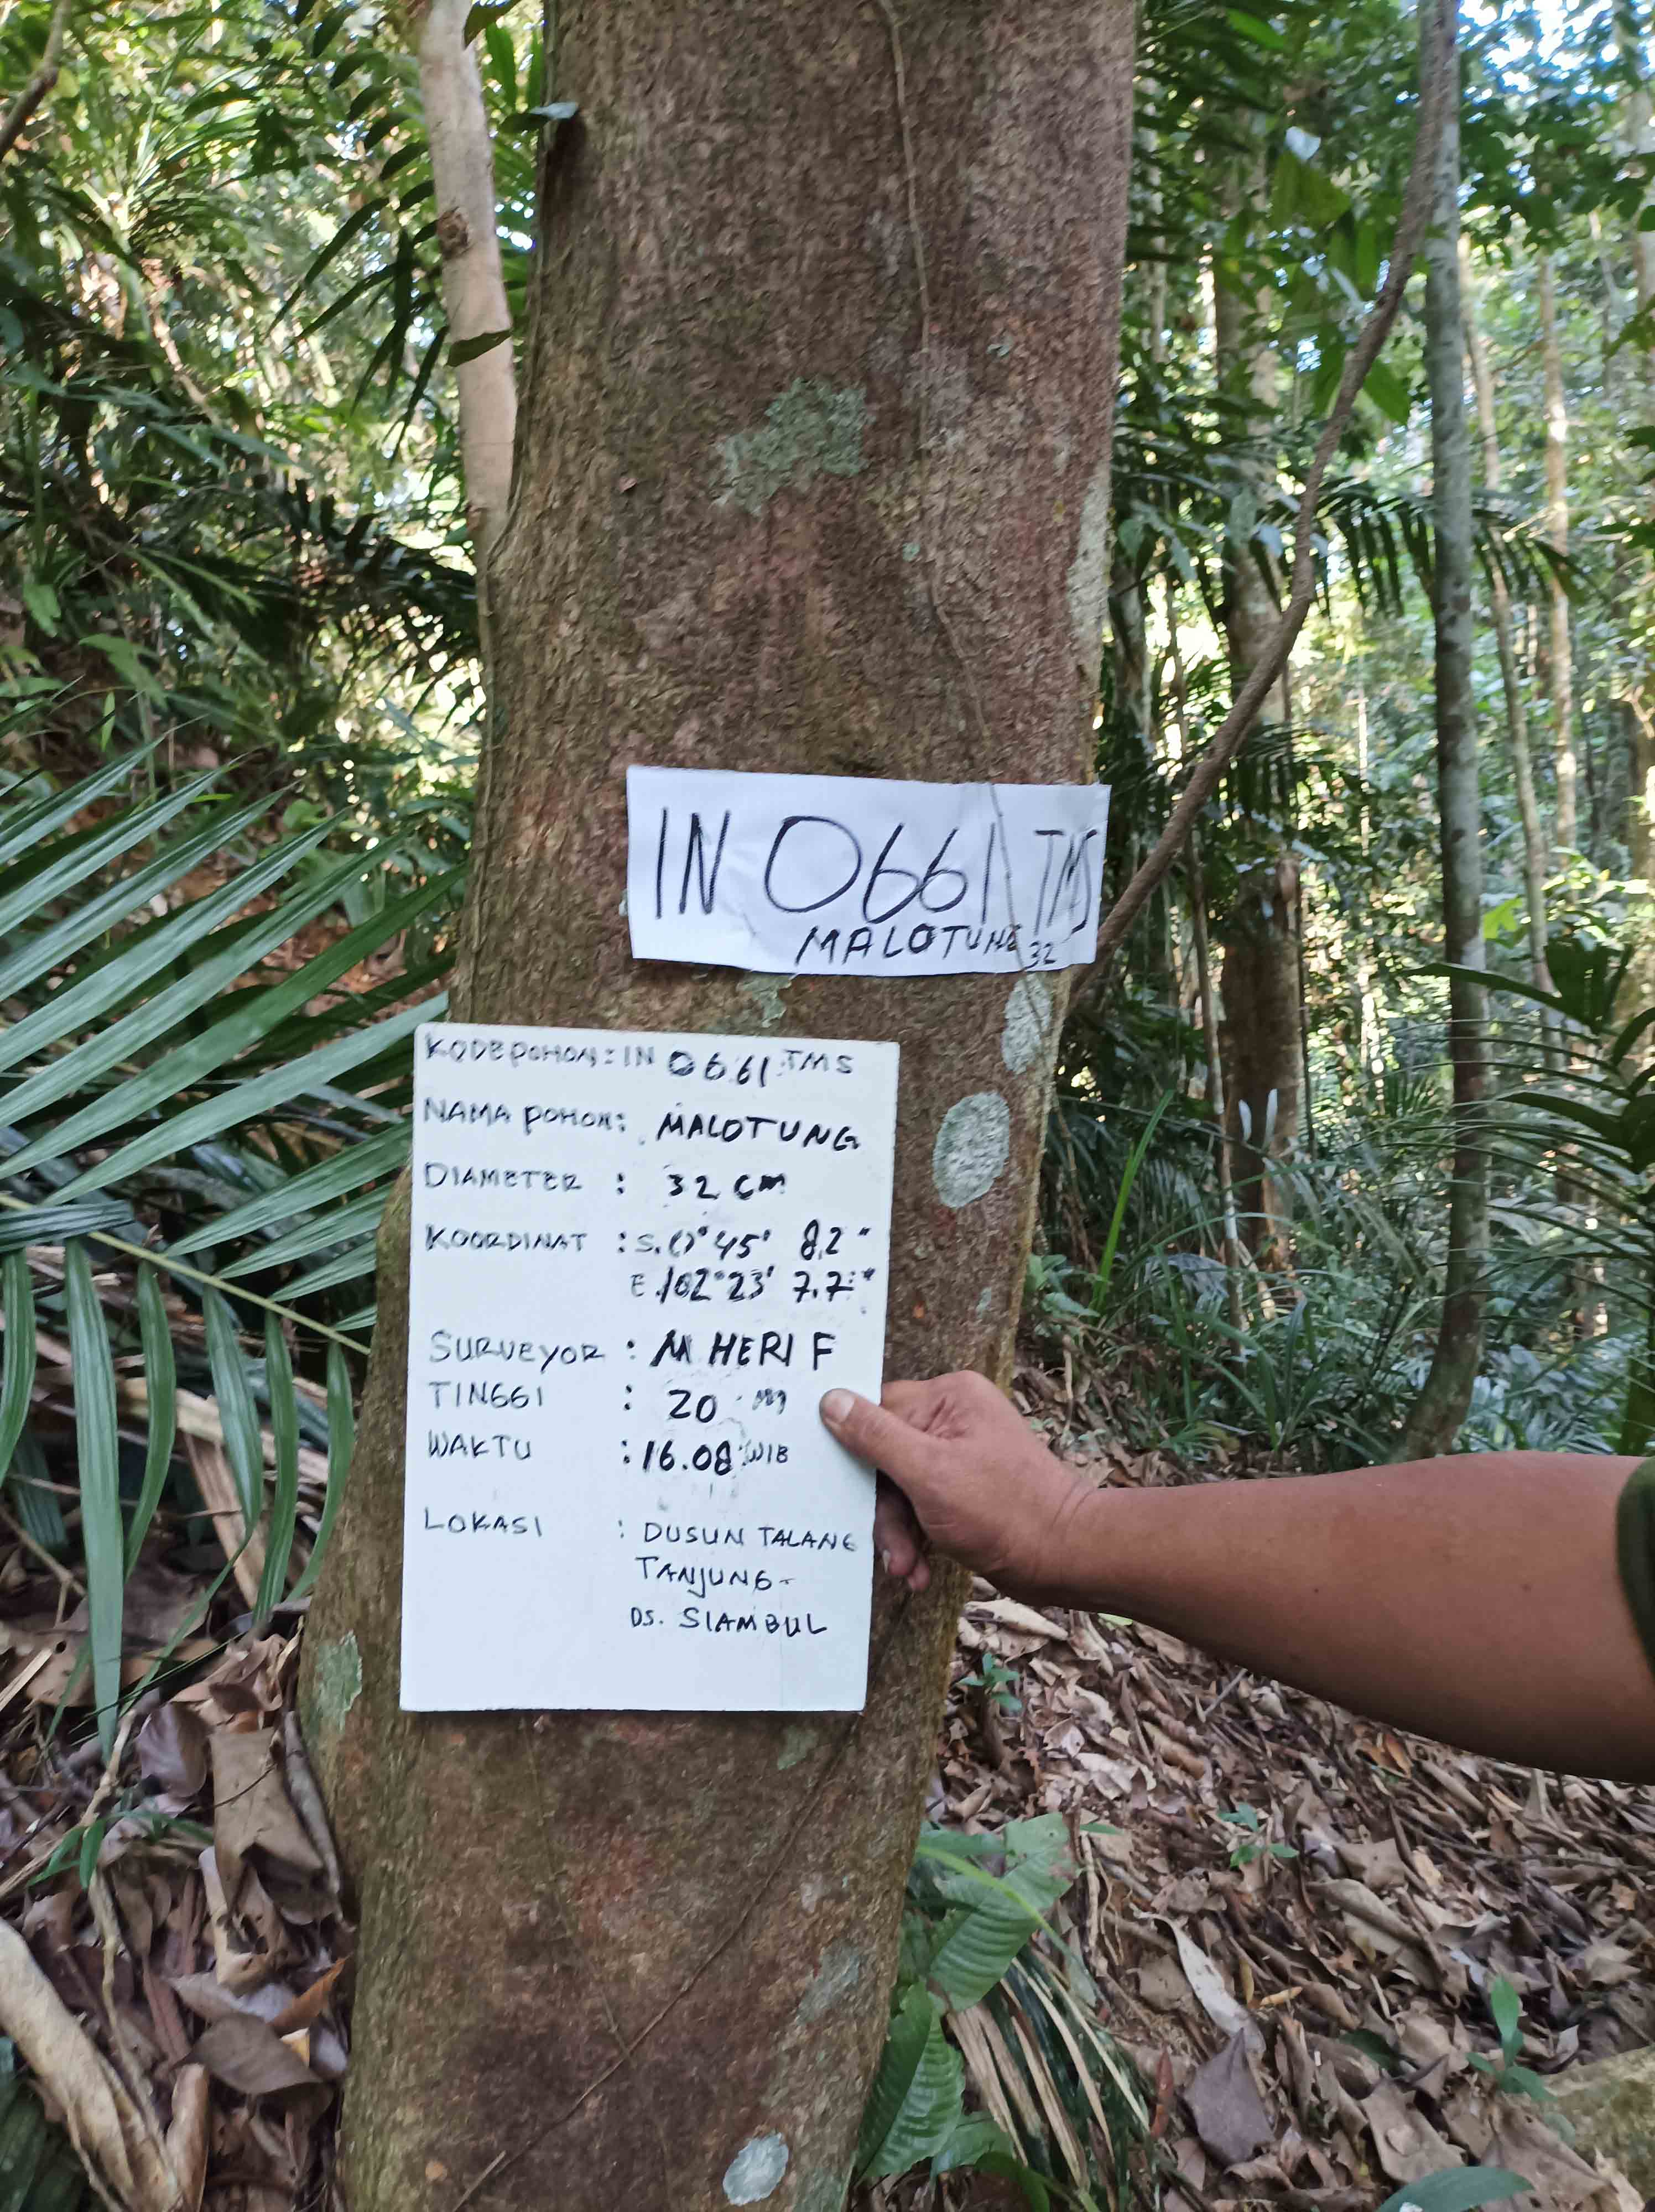 IN 0661 TMS
MALOTUNG 32
KODE POHON : IN 0661 TMS
NAMA POHON : MALOTUNG
DIAMETER : 32 CM
KOORDINAT : S. 0° 45' 8,2"
E. 102° 23' 7.7"
SURVEYOR : M HERI F
TINGGI : 20 M
WAKTU : 16.08 WIB
LOKASI : DUSUN TALANG
TANJUNG -
DS. SIAMBUL